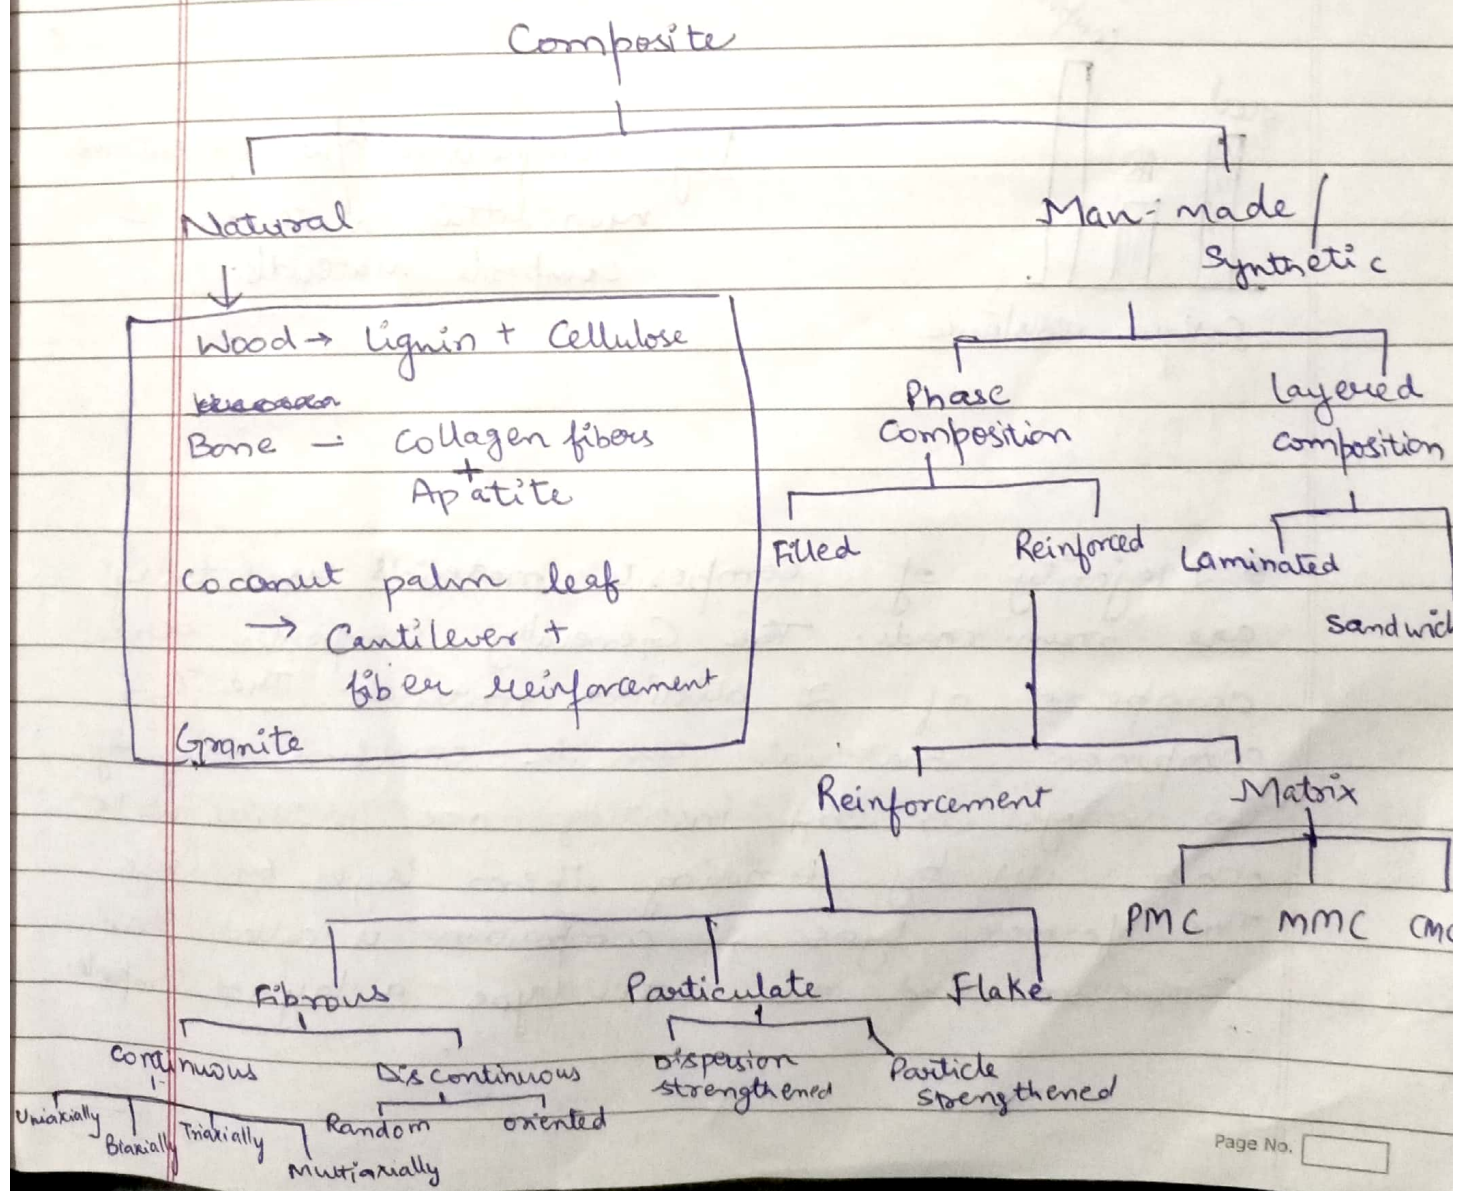 Composite
Natural
Man-made /
Synthetic
Wood → Lignin + Cellulose
Bone - Collagen fibers
+
Apatite
Coconut palm leaf
→ Cantilever +
fiber reinforcement
Granite
Phase
Composition
Layered
composition
Filled
Reinforced
Laminated
Sandwich
Reinforcement
Matrix
PMC MMC CMC
Fibrous
Particulate
Flake
Continuous
Discontinuous
Dispersion
strengthened
Particle
strengthened
Uniaxially
Biaxially
Triaxially
Multiaxially
Random
oriented
Page No.